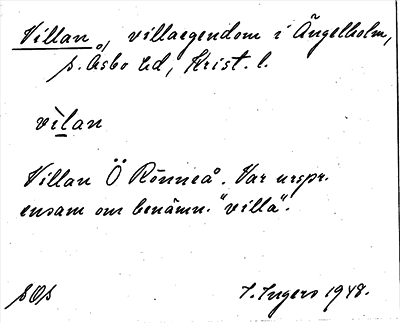 Villan, villaegendom i Ängelholm,
s. Åsbo hd, Krist. l.
vìlan
Villan Ö Rönneå. Var urspr.
ensam om benämn. "villa".
sOs
I. Ingers 1948.